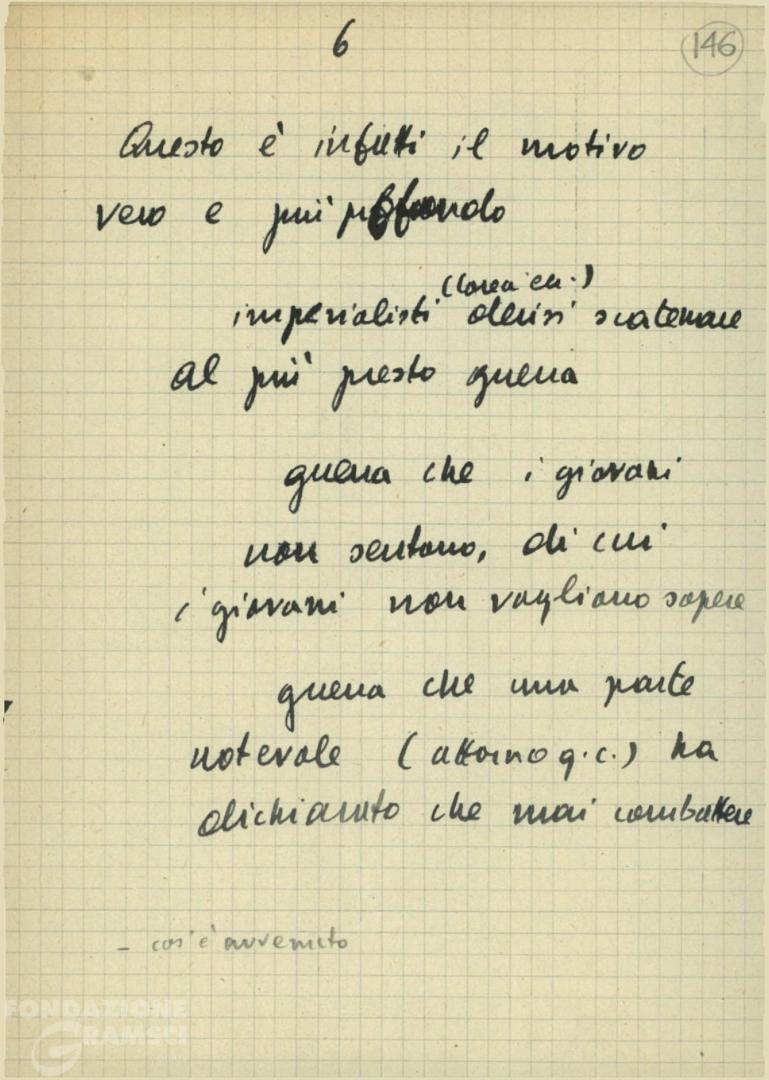 6
146
Questo è infatti il motivo
vero e piú profondo
(Corea ecc.)
imperialisti decisi scatenare
al piú presto guerra
guerra che i giovani
non sentono, di cui
i giovani non vogliono sapere
guerra che una parte
notevole (attorno q.c.) ha
dichiarato che mai combattere
- cos'è avvenuto
FONDAZIONE
GRAMSCI